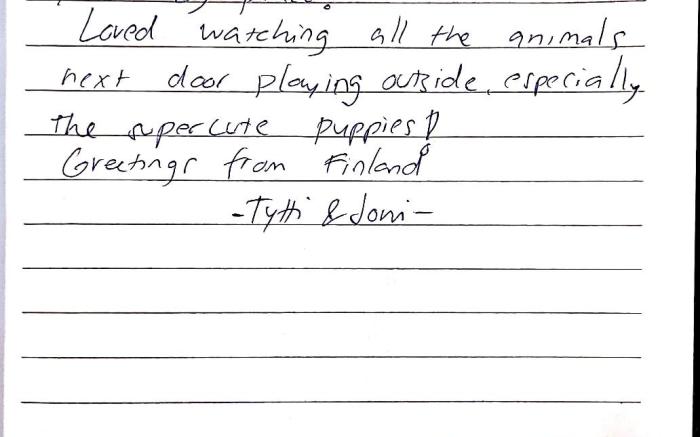 Loved watching all the animals
next door playing outside, especially
the supercute puppies!
Greetings from Finland
-Tytti & Joni-